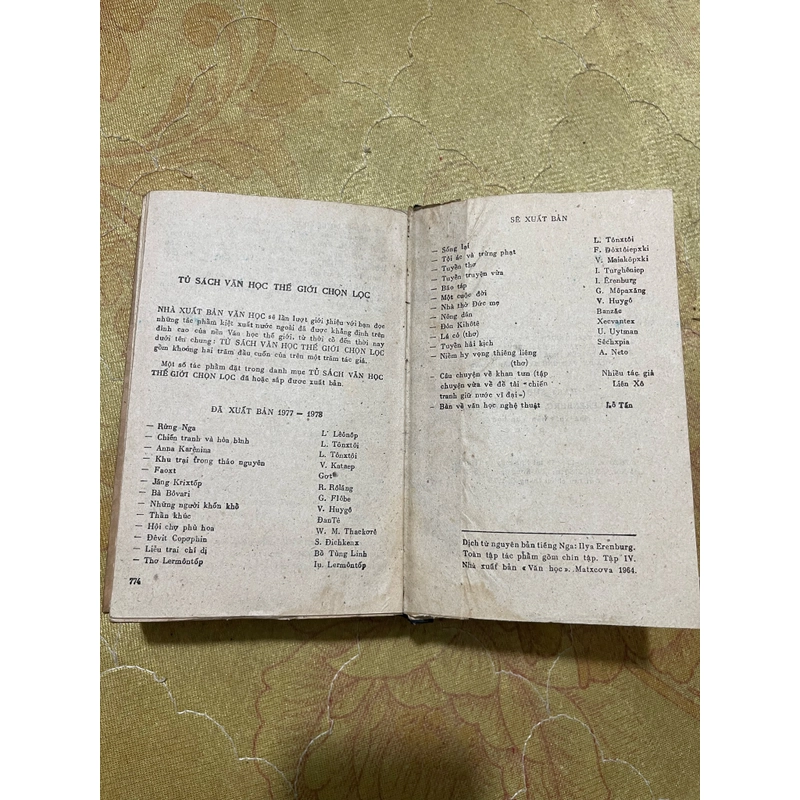 TỦ SÁCH VĂN HỌC THẾ GIỚI CHỌN LỌC
NHÀ XUẤT BẢN VĂN HỌC sẽ lần lượt giới thiệu với bạn đọc
những tác phẩm kiệt xuất nước ngoài đã được khẳng định trên
đỉnh cao của nền Văn học thế giới, từ thời cổ đến thời nay
dưới tên chung: TỦ SÁCH VĂN HỌC THẾ GIỚI CHỌN LỌC
gồm khoảng hai trăm đầu cuốn của trên một trăm tác giả.
Một số tác phẩm đặt trong danh mục TỦ SÁCH VĂN HỌC
THẾ GIỚI CHỌN LỌC đã hoặc sắp được xuất bản.
ĐÃ XUẤT BẢN 1977 — 1978
— Rừng Nga L. Lêônôp
— Chiến tranh và hòa bình L. Tônxtôi
— Anna Karênina L. Tônxtôi
— Khu trại trong thảo nguyên V. Kataep
— Faoxt Gơt
— Jăng Krixtốp R. Rôlăng
— Bà Bôvari G. Flôbe
— Những người khốn khổ V. Huygô
— Thần khúc ĐanTê
— Hội chợ phù hoa W. M. Thackơrê
— Đêvit Copơphin S. Đichkenx
— Liêu trai chí dị Bồ Tùng Linh
— Thơ Lermôntốp Iu. Lermôntốp
774
SẼ XUẤT BẢN
— Sống lại L. Tônxtôi
— Tội ác và trừng phạt F. Đôxtôiepxki
— Tuyển thơ V. Maiakôpxki
— Tuyển truyện vừa I. Turghêniep
— Bão táp I. Êrenburg
— Một cuộc đời G. Môpaxăng
— Nhà thờ Đức mẹ V. Huygô
— Nông dân Banzăc
— Đôn Kihôtê Xecvantex
— Lá cỏ (thơ) U. Uytman
— Tuyển hài kịch Sêchxpia
— Niềm hy vọng thiêng liêng A. Neto
(thơ)
— Câu chuyện về khan tưn (tập Nhiều tác giả
chuyện vừa về đề tài «chiến Liên Xô
tranh giữ nước vĩ đại»)
— Bàn về văn học nghệ thuật Lỗ Tấn
Dịch từ nguyên bản tiếng Nga: Ilya Erenburg.
Toàn tập tác phẩm gồm chín tập. Tập IV.
Nhà xuất bản «Văn học». Matxcơva 1964.